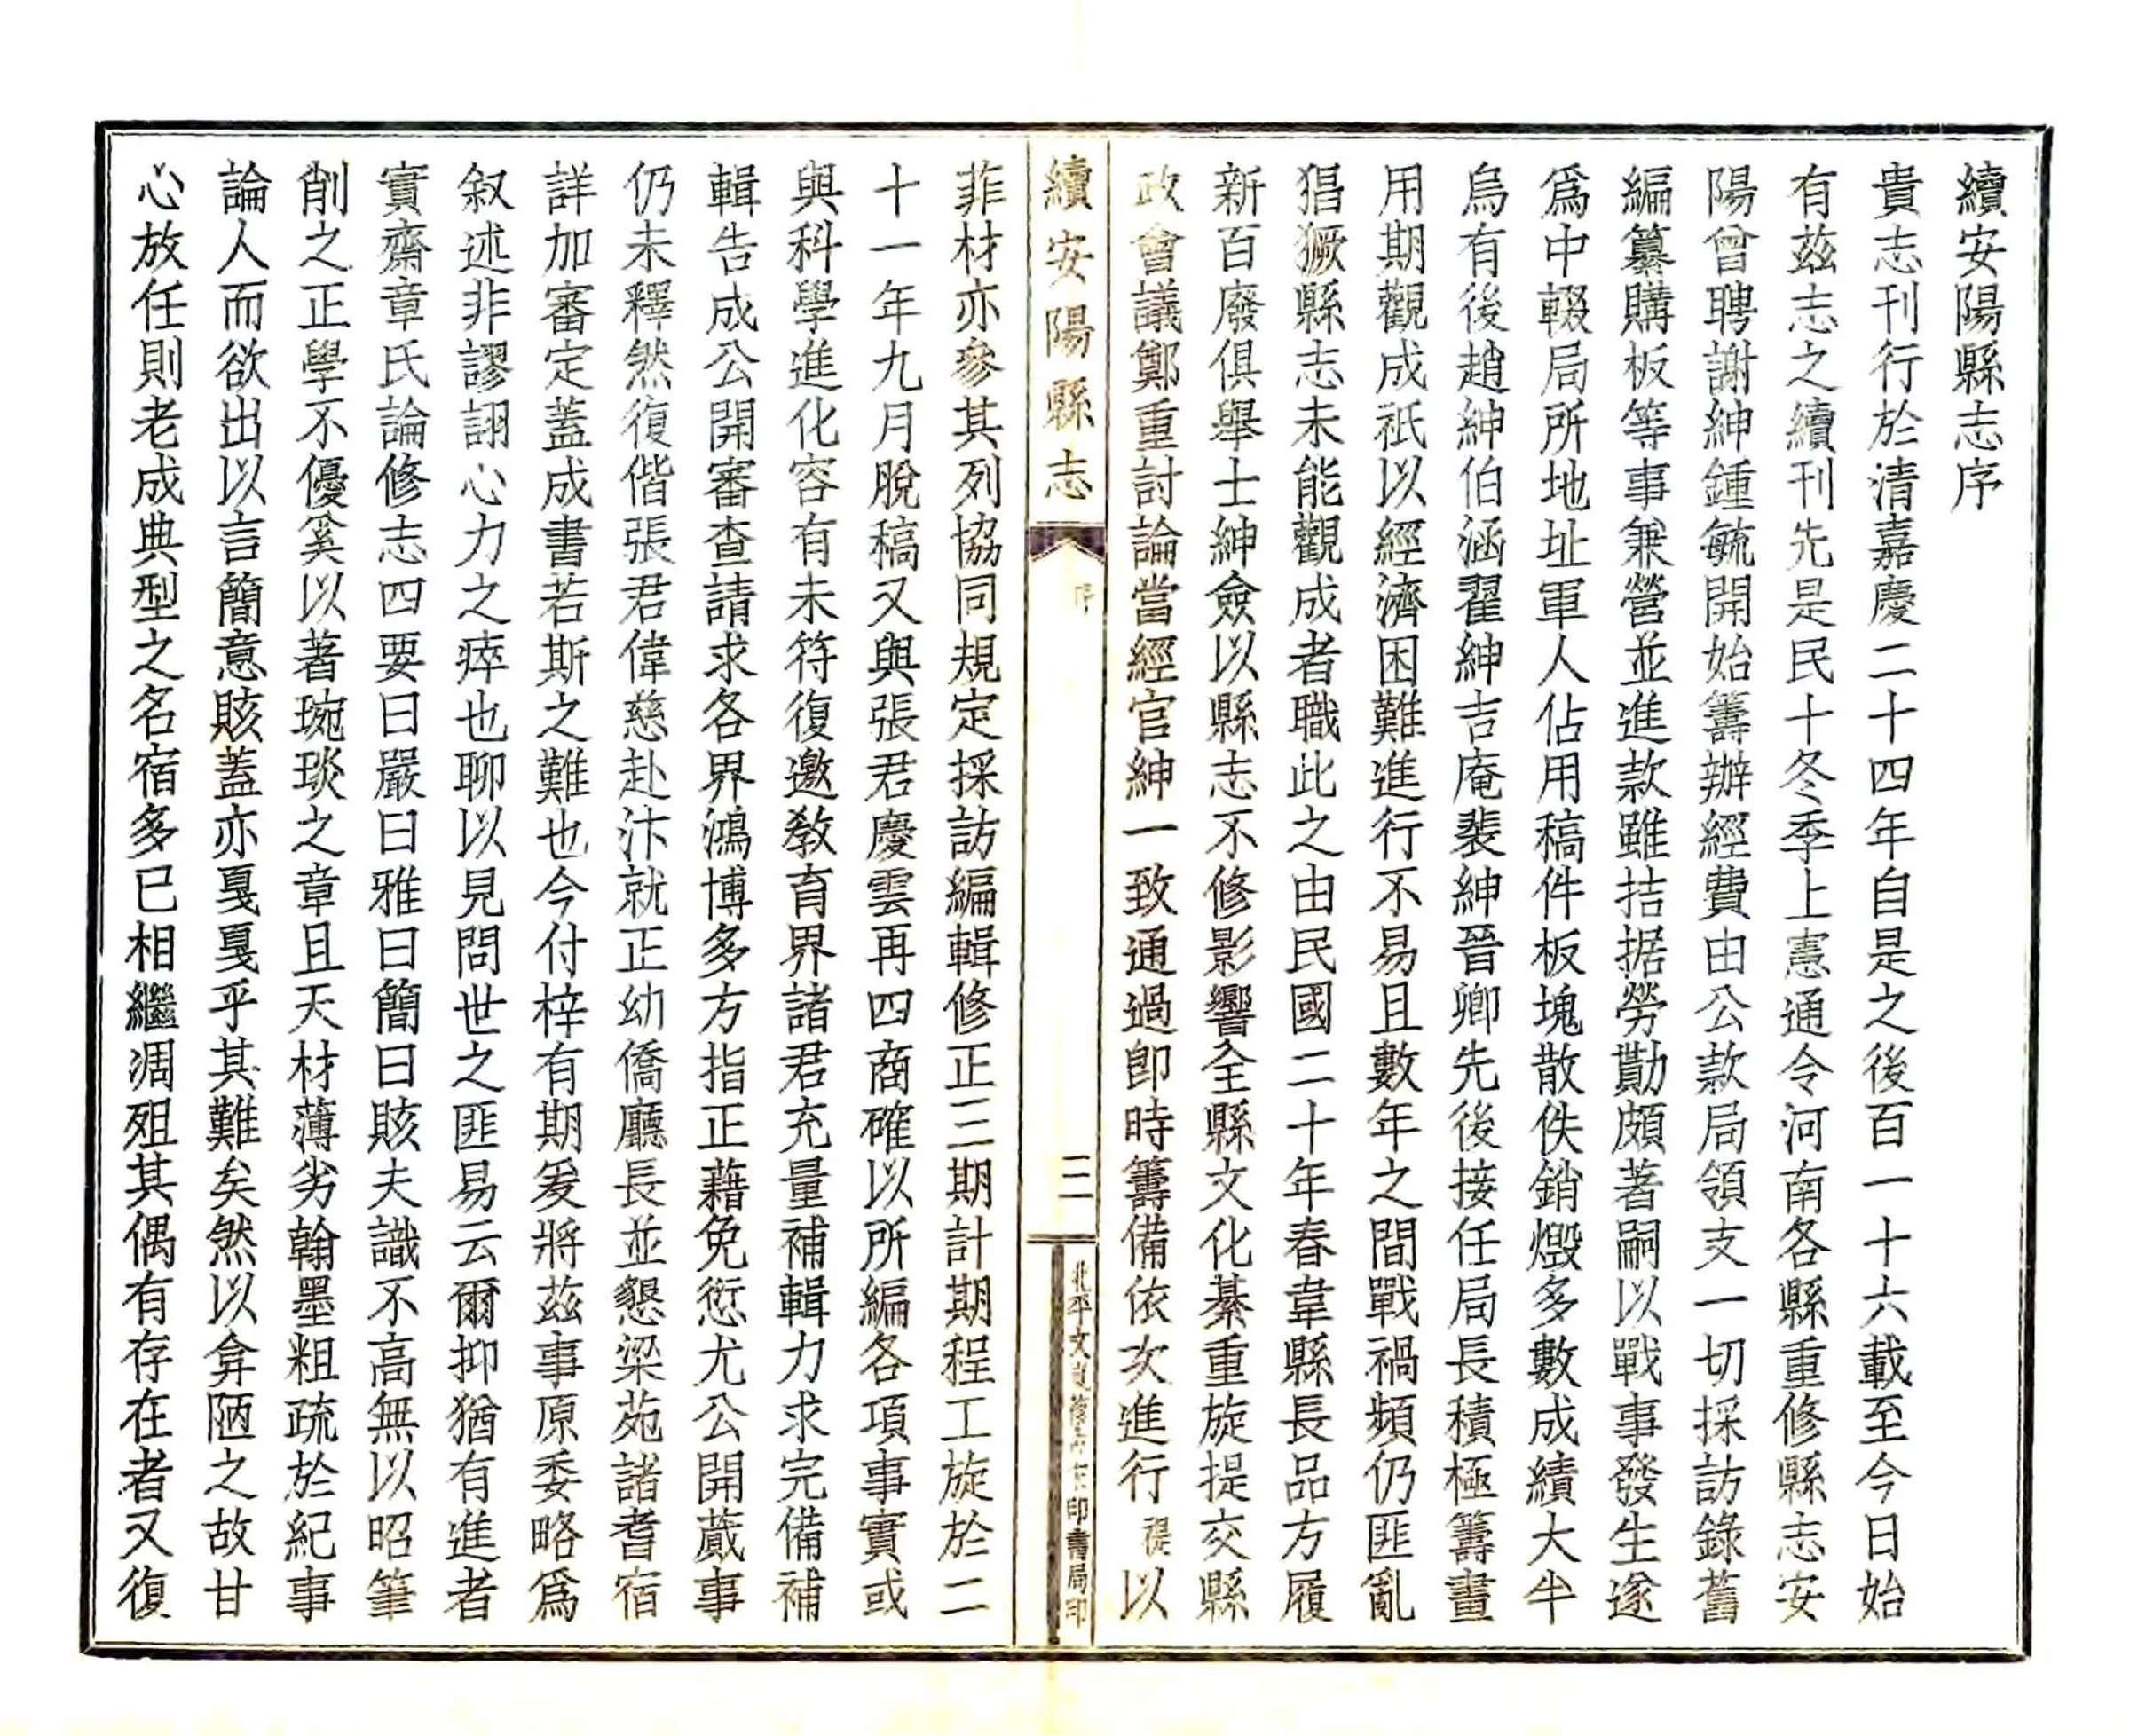 續安陽縣志序
貴志刊行於清嘉慶二十四年自是之後百一十六載至今日始
有茲志之續刊先是民十冬季上憲通令河南各縣重修縣志安
陽曾聘謝紳鍾毓開始籌辦經費由公款局領支一切採訪錄舊
編纂購板等事兼營並進款雖拮据勞勩頗著嗣以戰事發生遂
爲中輟局所地址軍人佔用稿件板塊散佚銷燬多數成績大半
烏有後趙紳伯涵翟紳吉庵裴紳晉卿先後接任局長積極籌畫
用期觀成祇以經濟困難進行不易且數年之間戰禍頻仍匪亂
猖獗縣志未能觀成者職此之由民國二十年春韋縣長品方履
新百廢俱舉士紳僉以縣志不修影響全縣文化綦重旋提交縣
政會議鄭重討論當經官紳一致通過卽時籌備依次進行禔以
續安陽縣志
序
三
北平文嵐簃古宋印書局印
菲材亦參其列協同規定採訪編輯修正三期計期程工旋於二
十一年九月脫稿又與張君慶雲再四商確以所編各項事實或
與科學進化容有未符復邀敎育界諸君充量補輯力求完備補
輯告成公開審查請求各界鴻博多方指正藉免愆尤公開蕆事
仍未釋然復偕張君偉慈赴汴就正幼僑廳長並懇梁苑諸耆宿
詳加審定蓋成書若斯之難也今付梓有期爰將茲事原委略爲
叙述非謬詡心力之瘁也聊以見問世之匪易云爾抑猶有進者
實齋章氏論修志四要曰嚴曰雅曰簡曰賅夫識不高無以昭筆
削之正學不優奚以著琬琰之章且天材薄劣翰墨粗疏於紀事
論人而欲出以言簡意賅蓋亦戛戛乎其難矣然以弇陋之故甘
心放任則老成典型之名宿多已相繼凋殂其偶有存在者又復